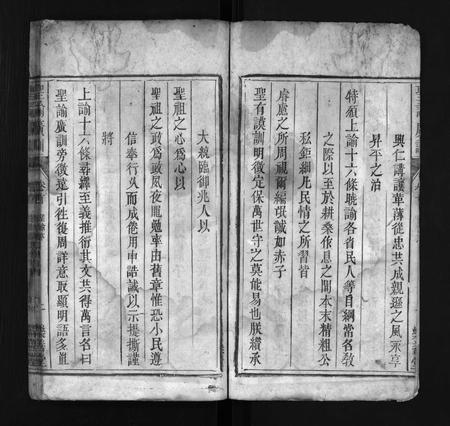 興仁講讓革薄從忠共成親遜之風永享
昇平之治
特頒上諭十六條曉諭各省民人等自綱常名教
之際以至於耕桑作息之間本末精粗公
私鉅細凡民情之所習皆
睿慮之所周視爾編氓誠如赤子
聖有謨訓明徵定保萬世守之莫能易也朕纘承
大統臨御兆人以
聖祖之心為心以
聖祖之政為政夙夜黽勉率由舊章惟恐小民遵
信奉行久而或怠用申誥誡以示提撕謹
將
上諭十六條尋繹其義推衍其文共得萬言名曰
聖諭廣訓旁徵遠引往復周詳意取顯明語多直